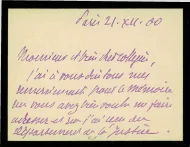 Paris 21-XII-00
Monsieur et très cher collègue,
j'ai à vous dire tous mes
remerciements pour le mémoire
que vous avez bien voulu me faire
adresser et que j'ai reçu du
département de la Justice.